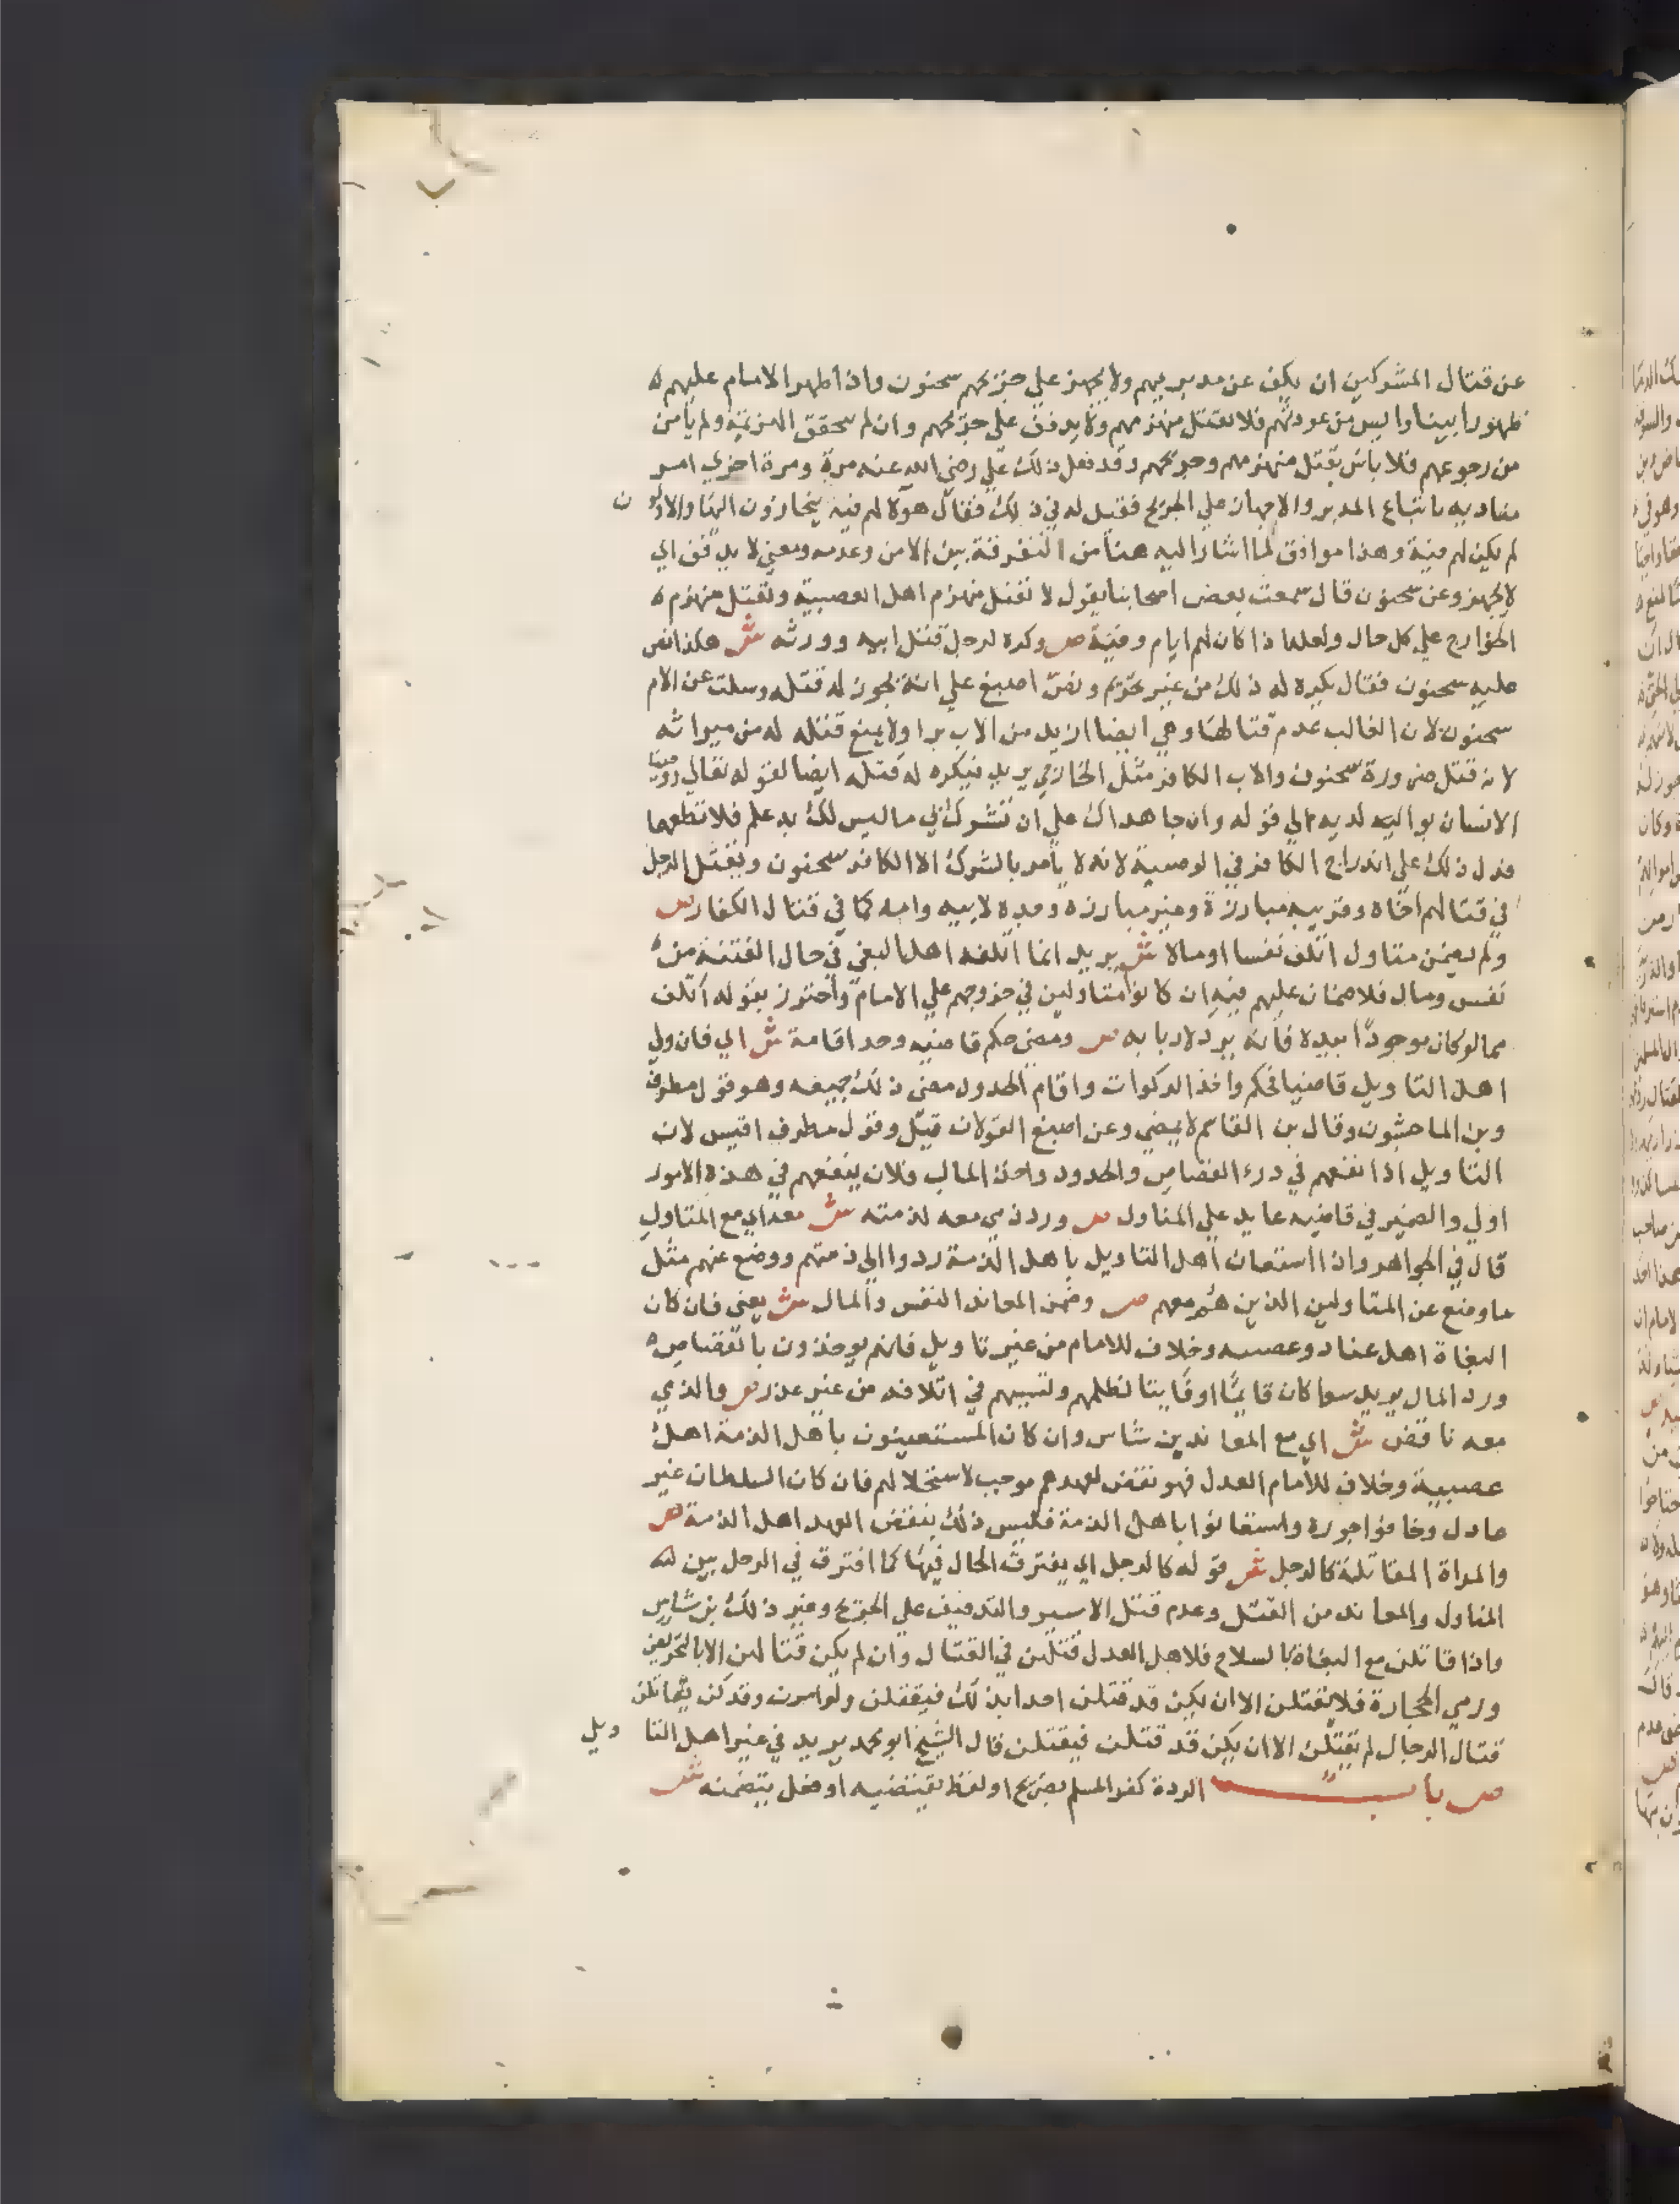 عن قتال المشركين ان يكف عن مدبريهم ولا يجهز علي جريحهم سحنون واذا ظهر الامام عليهم
ظهورا بينا وايس من عودتهم فلا يقتل منهزمهم ولا يدفف على جريحهم وان لم يتحقق الهزيمة ولم يأمن
من رجوعهم فلا باس بقتل منهزمهم وجريحهم وقد فعل ذلك علي رضي الله عنه مرة ومرة اخري امر
مناديه باتباع المدبر والاجهاز علي الجريح فقيل له في ذلك فقال هولا لهم فية ينحازون اليها والاولون
لم يكن لهم فية وهذا موافق لما اشار اليه هنا من التفرقة بين الامن وعدمه ومعني لا يدفف اي
لا يجهز وعن سحنون قال سمعت بعض اصحابنا يقول لا تقتل منهزم اهل العصبية وتقتل منهزم
الخوارج علي كل حال ولعلها ذا كان لهم ايام وفية ص وكره لرجل قتل ابيه وورثه ش هكذا نص
عليه سحنون فقال يكره له ذلك من غير تحريم ونص اصبغ علي انه يجوز له قتله وسكت عن الام
سحنون لان الغالب عدم قتالها وهي ايضا ازيد من الاب برا ولا يمنع قتله له من ميراثه
لانه قتل ضرورة سحنون والاب الكافر مثل الخارجي يريد فيكره له قتله ايضا لقوله تعالي ووصينا
الانسان بوالديه الي قوله وان جاهداك علي ان تشرك بي ما ليس لك به علم فلا تطعهما
فدل ذلك علي اندراج الكافر في الوصية لانه لا يأمر بالشرك الا الكافر سحنون ويقتل الرجل
في قتالهم اخاه وقريبه مبارزة وغير مبارزه وجده لابيه وامه كما في قتال الكفار ص
ولم يضمن متاول اتلف نفسا او مالا ش يريد انما اتلفه اهل البغي في حال الفتنة من
نفس ومال فلا ضمان عليهم فيه ان كانوا متاولين في خروجهم علي الامام واحترز بقوله اتلف
مما لو كان موجودا بيده فانه يرد لاربابه ص ومضي حكم قاضيه وحد اقامه ش اي فان ولي
اهل التاويل قاضيا فحكم واخذ الزكوات واقام الحدود مضي ذلك جميعه وهو قول مطرف
وبن الماجشون وقال بن القاسم لا يمضي وعن اصبغ القولان قيل وقول مطرف اقيس لان
التاويل اذا نفعهم في درء القصاص والحدود واخذ المال فلان ينفعهم في هذه الامور
اولي والضمير في قاضيه عايد علي المتاول ص ورد ذمي معه لذمته ش معه اي مع المتاول
قال في الجواهر واذا استعان اهل التاويل باهل الذمة ردوا الي ذمتهم ووضع عنهم مثل
ما وضع عن المتاولين الذين هم معهم ص وضمن المعاند النفس والمال ش يعني فان كان
البغاة اهل عناد وعصبية وخلاف للامام من غير تاويل فانهم يوخذون بالقصاص
ورد المال يريد سوا كان قايما او فايتا لظلمهم ولتسببهم في اتلافه من غير عذر ص والذي
معه ناقض ش اي مع المعاند بن شاس وان كان المستعينون باهل الذمة اهل
عصبية وخلاف للامام العدل فهو نقض لعهدهم موجب لاستحلالهم فان كان السلطان غير
عادل وخافوا جوره واستعانوا باهل الذمة فليس ذلك بنقض العهد اهل الذمة ص
والمراة المقاتلة كالرجل ش قوله كالرجل اي يفترق الحال فيها كما افترق في الرجل بين
المتاول والمعاند من القتل وعدم قتل الاسير والتدفيف علي الجريح وغير ذلك بن شاس
واذا قاتلن مع البغاة بالسلاح فلاهل العدل قتلهن في القتال وان لم يكن قتالهن الا بالتحريض
ورمي الحجارة فلا يقتلن الا ان يكن قد قتلن احدا بذلك فيقتلن ولو اسرن وقد كن يقاتلن
قتال الرجال لم يقتلن الا ان يكن قد قتلن فيقتلن قال الشيخ ابو محمد يريد في غير اهل التاويل
ص باب الردة كفر المسلم بصريح او لفظ يقتضيه او فعل يتضمنه ش